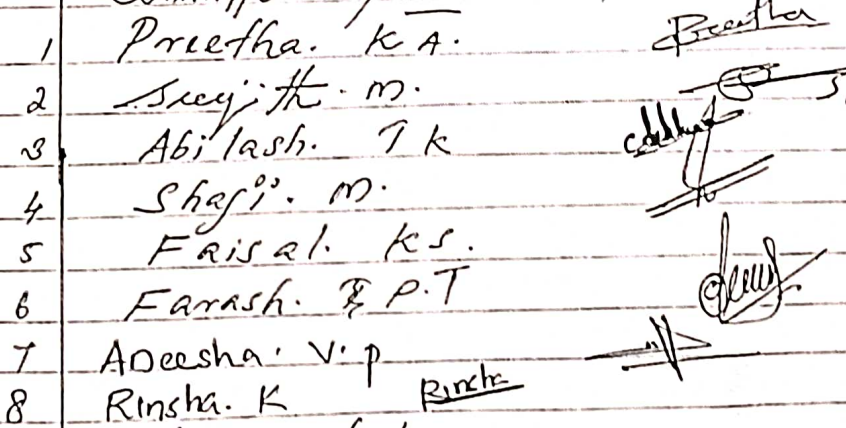 1 Preetha. K A. Preetha
2 Sreejith. M.
3 Abilash. T K
4 Shaji. M.
5 Faisal. K S.
6 Farash. P.T
7 Adeesha. V. P
8 Rinsha. K Rinsha